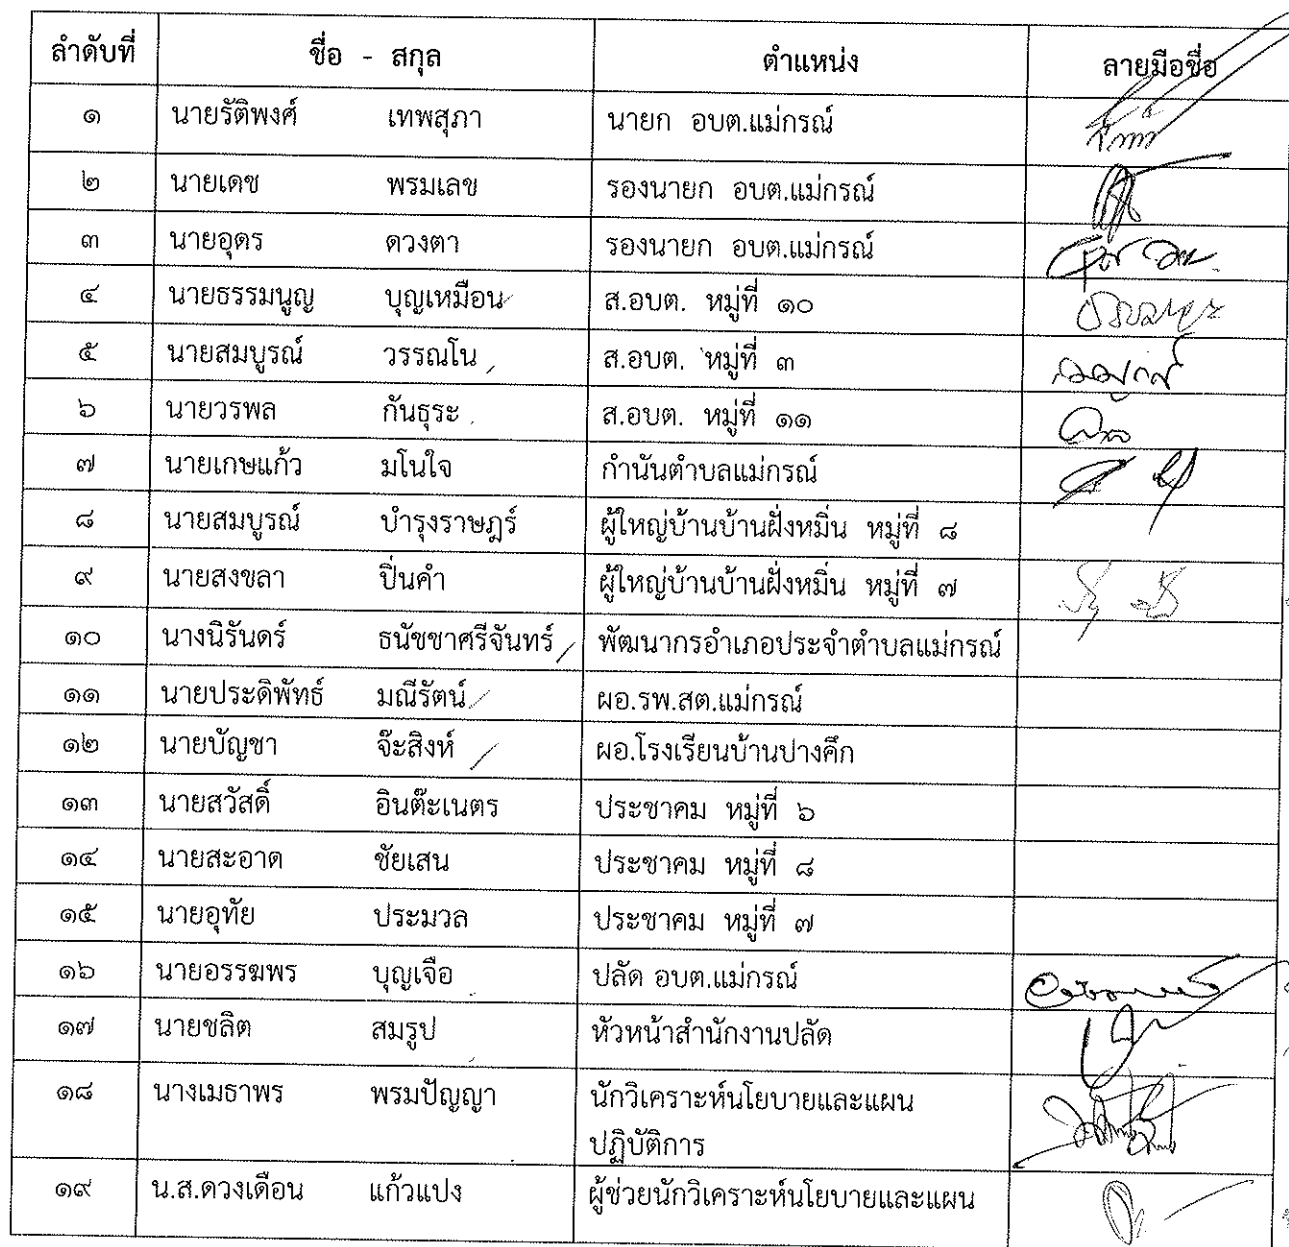 ลำดับที่ ชื่อ - สกุล ตำแหน่ง ลายมือชื่อ
๑ นายรัติพงศ์ เทพสุภา นายก อบต.แม่กรณ์
๒ นายเดช พรมเลข รองนายก อบต.แม่กรณ์
๓ นายอุดร ดวงตา รองนายก อบต.แม่กรณ์
๔ นายธรรมนูญ บุญเหมือน ส.อบต. หมู่ที่ ๑๐
๕ นายสมบูรณ์ วรรณโน ส.อบต. หมู่ที่ ๓
๖ นายวรพล กันธุระ ส.อบต. หมู่ที่ ๑๑
๗ นายเกษแก้ว มโนใจ กำนันตำบลแม่กรณ์
๘ นายสมบูรณ์ บำรุงราษฎร์ ผู้ใหญ่บ้านบ้านฝั่งหมิ่น หมู่ที่ ๘
๙ นายสงขลา ปิ่นคำ ผู้ใหญ่บ้านบ้านฝั่งหมิ่น หมู่ที่ ๗
๑๐ นางนิรันดร์ ธนัชชาศรีจันทร์ พัฒนากรอำเภอประจำตำบลแม่กรณ์
๑๑ นายประดิพัทธ์ มณีรัตน์ ผอ.รพ.สต.แม่กรณ์
๑๒ นายบัญชา จ๊ะสิงห์ ผอ.โรงเรียนบ้านปางคึก
๑๓ นายสวัสดิ์ อินต๊ะเนตร ประชาคม หมู่ที่ ๖
๑๔ นายสะอาด ชัยเสน ประชาคม หมู่ที่ ๘
๑๕ นายอุทัย ประมวล ประชาคม หมู่ที่ ๗
๑๖ นายอรรฆพร บุญเจือ ปลัด อบต.แม่กรณ์
๑๗ นายชลิต สมรูป หัวหน้าสำนักงานปลัด
๑๘ นางเมธาพร พรมปัญญา นักวิเคราะห์นโยบายและแผน
ปฏิบัติการ
๑๙ น.ส.ดวงเดือน แก้วแปง ผู้ช่วยนักวิเคราะห์นโยบายและแผน